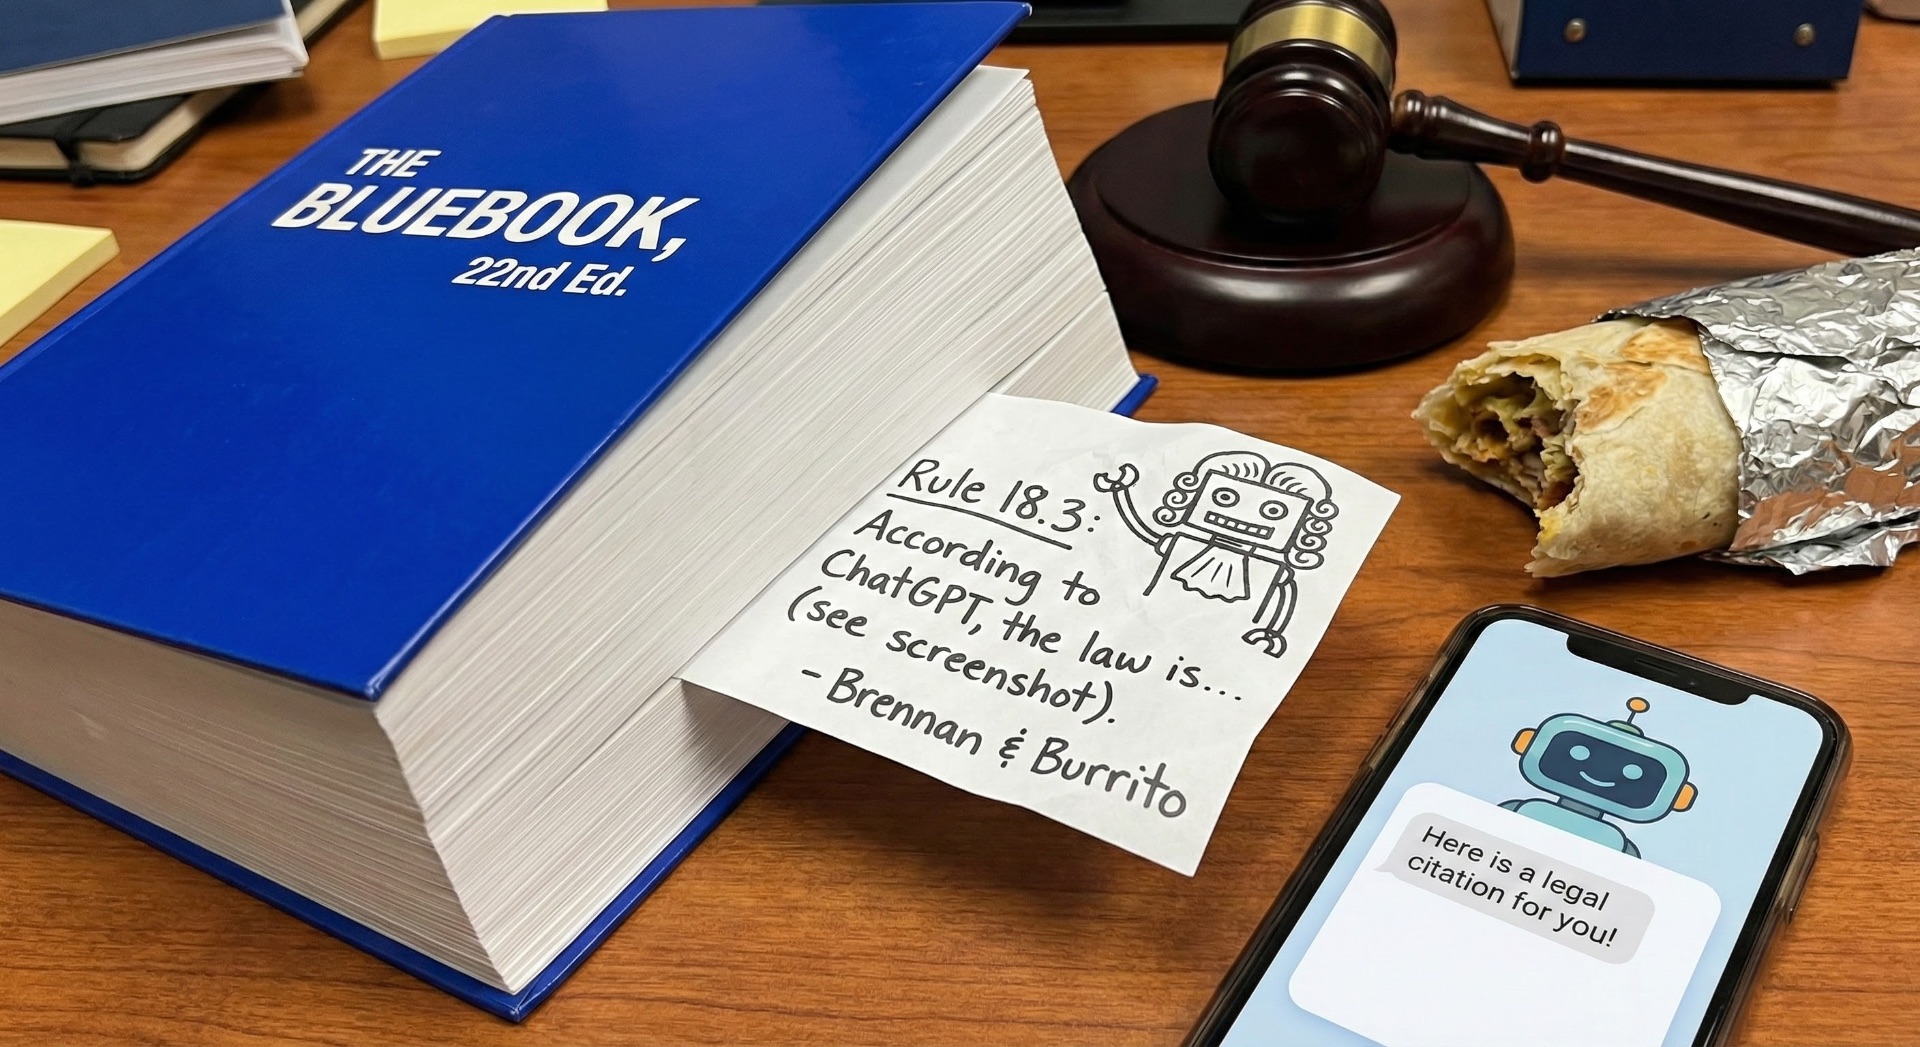 THE
BLUEBOOK,
22nd Ed.
Rule 18.3:
According to
ChatGPT, the law is...
(see screenshot).
- Brennan & Burrito
Here is a legal
citation for you!